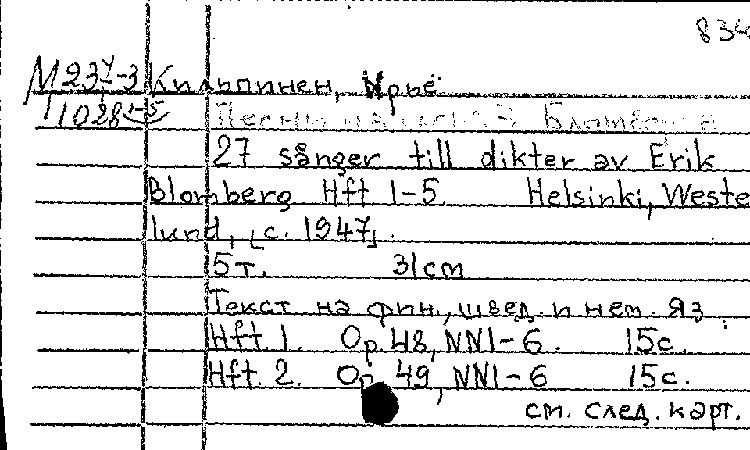 834
М 237-3 Кильпинен, Ирьё
11028 1-5
27 sånger till dikter av Erik
Blomberg Hft 1-5 Helsinki, Weste
lund, [c. 1947].
5 т. 31 cm
Текст на фин., швед. и нем. яз.
Hft 1. Op. 48, NN1-6. 15 с.
Hft 2. Op. 49, NN1-6 15 с.
см. след. карт.